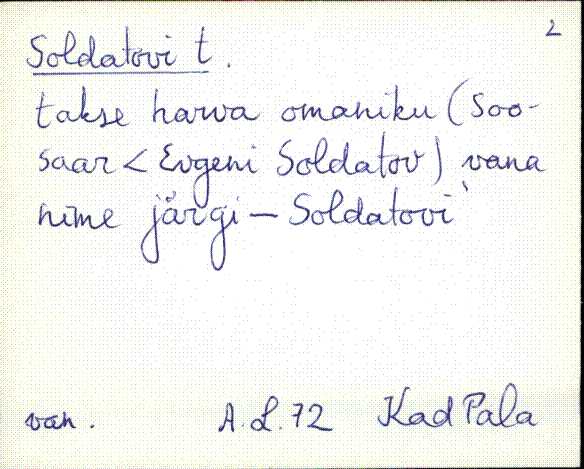 2
Soldatovi t.
takse harva omaniku (Soo-
saar < Evgeni Soldatov) vana
nime järgi — Soldatovi
van. A.L.72 Kad Pala